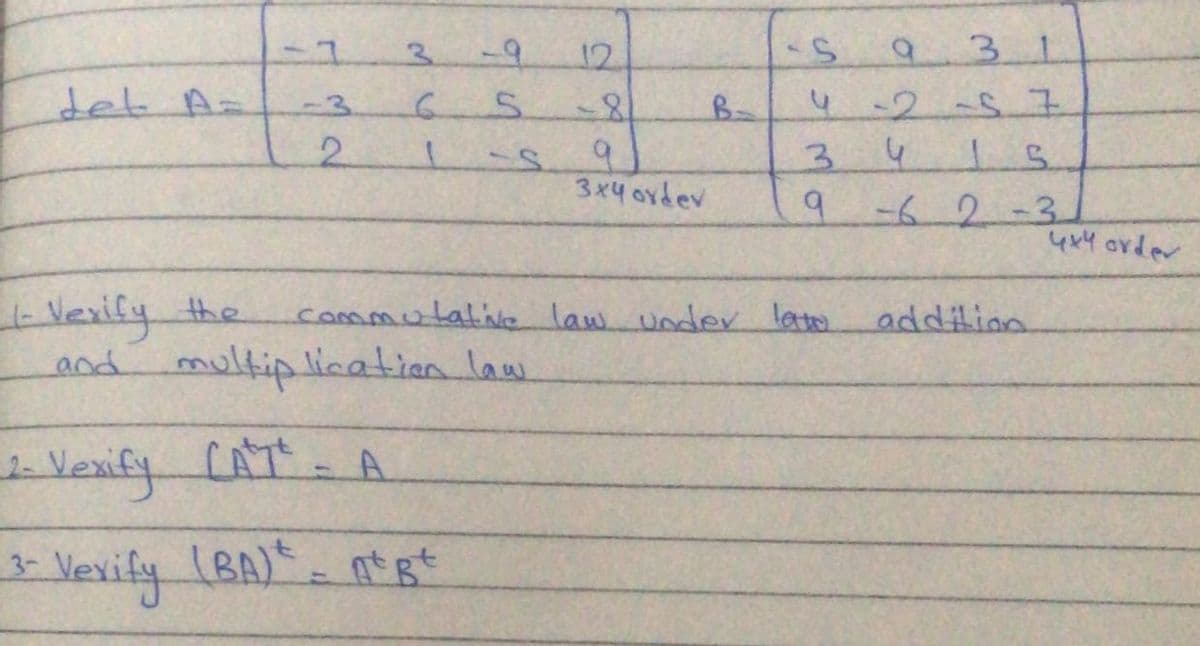 -7 3 -9 12 -5 9 3 1
det A= -3 6 5 -8 B= 4 -2 -5 7
2 1 -5 9 3 4 1 5
3x4 order 9 -6 2 -3
4x4 order
1- Verify the commutative law under addition
and multiplication law
2- Verify (Aᵗ)ᵗ = A
3- Verify (BA)ᵗ = Aᵗ Bᵗ